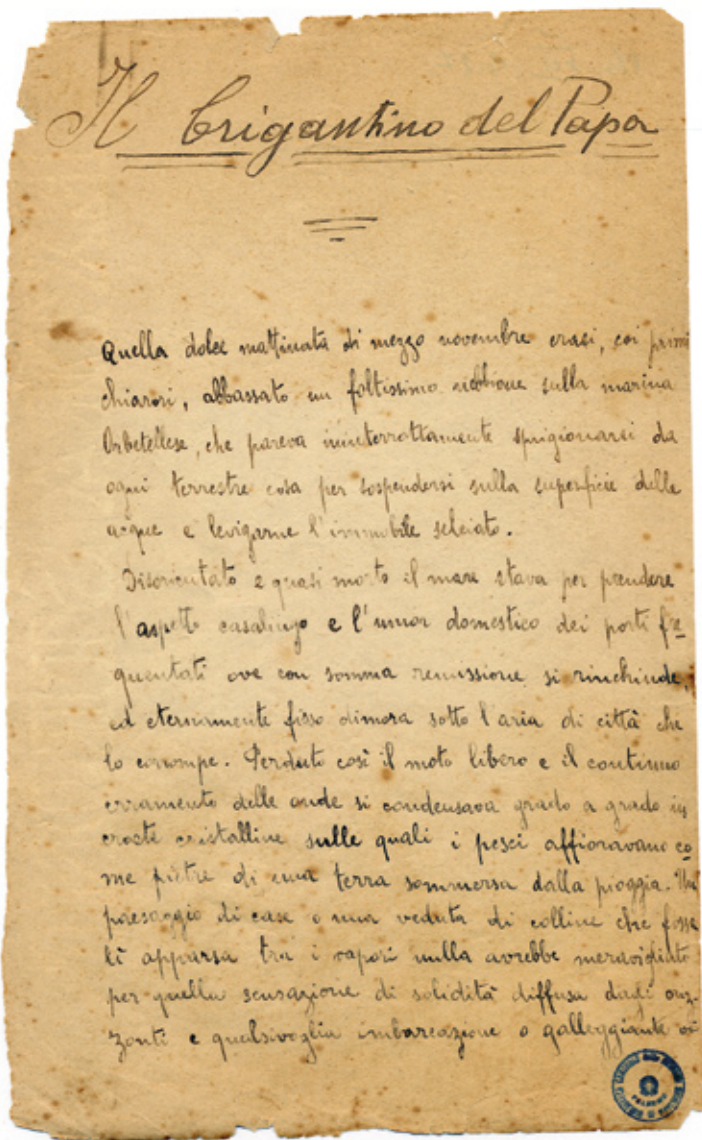 Il brigantino del Papa
Quella dolce mattinata di mezzo novembre erasi, coi primi
chiarori, abbassato un foltissimo nebbione sulla marina
Orbetellese, che pareva ininterrottamente sprigionarsi da
ogni terrestre cosa per sospendersi sulla superficie delle
acque e levigarne l'immobile selciato.
Disorientato e quasi morto il mare stava per prendere
l'aspetto casalingo e l'umor domestico dei porti fre
quentati ove con somma remissione si rinchiude,
ed eternamente fisso dimora sotto l'aria di città che
lo corrompe. Perduto così il moto libero e il continuo
erramento delle onde si condensava grado a grado in
croste cristalline sulle quali i pesci affioravano co
me pietre di una terra sommersa dalla pioggia. Un
paesaggio di case o una veduta di colline che fosse
lì apparsa tra i vapori nulla avrebbe meravigliato
per quella sensazione di solidità diffusa dagli oriz-
zonti e qualsivoglia imbarcazione o galleggiante